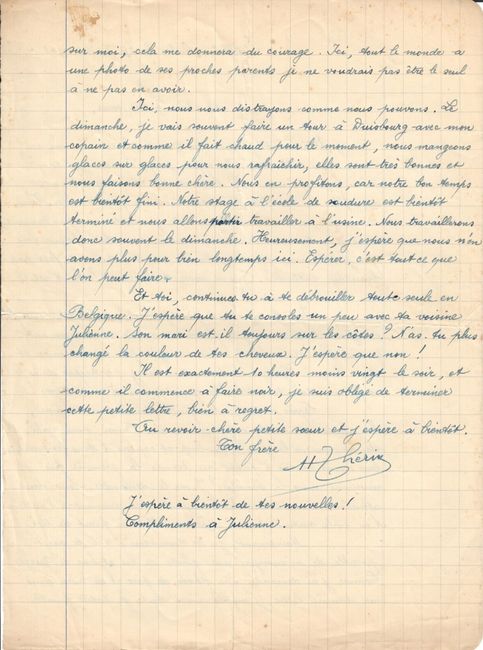 sur moi, cela me donnera du courage. Ici, tout le monde a
une photo de ses proches parents je ne voudrais pas être le seul
à ne pas en avoir.
Ici, nous nous distrayons comme nous pouvons. Le
dimanche, je vais souvent faire un tour à Duisbourg avec mon
copain et comme il fait chaud pour le moment, nous mangeons
glaces sur glaces pour nous rafraîchir, elles sont très bonnes et
nous faisons bonne chère. Nous en profitons, car notre bon temps
est bientôt fini. Notre stage à l'école de soudure est bientôt
terminé et nous allons partir travailler à l'usine. Nous travaillerons
donc souvent le dimanche. Heureusement, j'espère que nous n'en
avons plus pour bien longtemps ici. Espérer, c'est tout ce que
l'on peut faire.
Et toi, continues-tu à te débrouiller toute seule en
Belgique. J'espère que tu te consoles un peu avec ta voisine
Julienne. Son mari est-il toujours sur les côtes? N'as-tu plus
changé la couleur de tes cheveux. J'espère que non!
Il est exactement 10 heures moins vingt le soir, et
comme il commence à faire noir, je suis obligé de terminer
cette petite lettre, bien à regret.
Au revoir chère petite sœur et j'espère à bientôt.
Ton frère
J'espère à bientôt de tes nouvelles!
Compliments à Julienne.